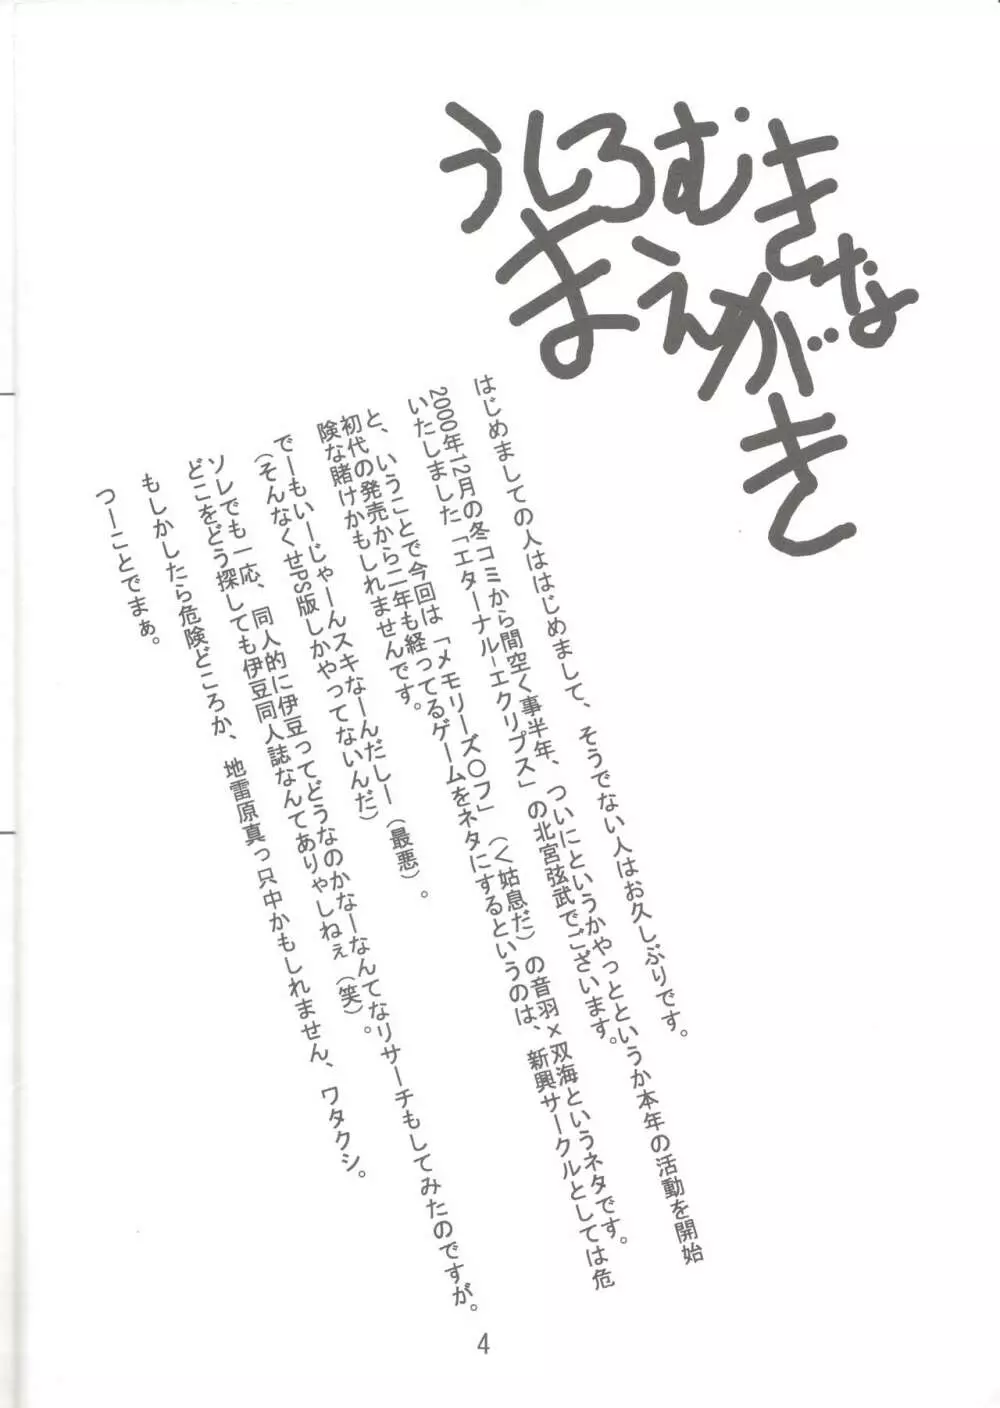 うしろむきな
まえがき
はじめましての人ははじめまして、そうでない人はお久しぶりです。
2000年12月の冬コミから間空く事半年、ついにというかやっとというか本年の活動を開始
いたしました「エターナル-エクリプス」の北宮弦武でございます。
と、いうことで今回は「メモリーズ〇フ」(<姑息だ)の音羽×双海というネタです。
初代の発売から二年も経ってるゲームをネタにするというのは、新興サークルとしては危
険な賭けかもしれませんです。
でーもいーじゃーんスキなーんだしー(最悪)。
(そんなくせPS版しかやってないんだ)
ソレでも一応、同人的に伊豆ってどうなのかなーなんてなリサーチもしてみたのですが。
どこをどう探しても伊豆同人誌なんてありゃしねぇ(笑)。
もしかしたら危険どころか、地雷原真っ只中かもしれません、ワタクシ。
つーことでまぁ。
4